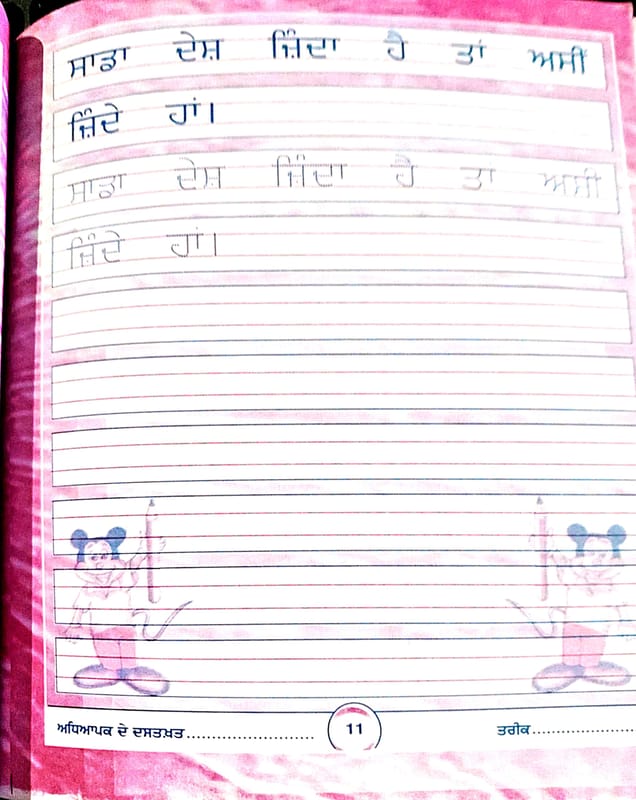 ਸਾਡਾ ਦੇਸ਼ ਜ਼ਿੰਦਾ ਹੈ ਤਾਂ ਅਸੀਂ
ਜ਼ਿੰਦੇ ਹਾਂ।
ਸਾਡਾ ਦੇਸ਼ ਜ਼ਿੰਦਾ ਹੈ ਤਾਂ ਅਸੀਂ
ਜ਼ਿੰਦੇ ਹਾਂ।
ਅਧਿਆਪਕ ਦੇ ਦਸਤਖ਼ਤ........................ 11 ਤਰੀਕ....................